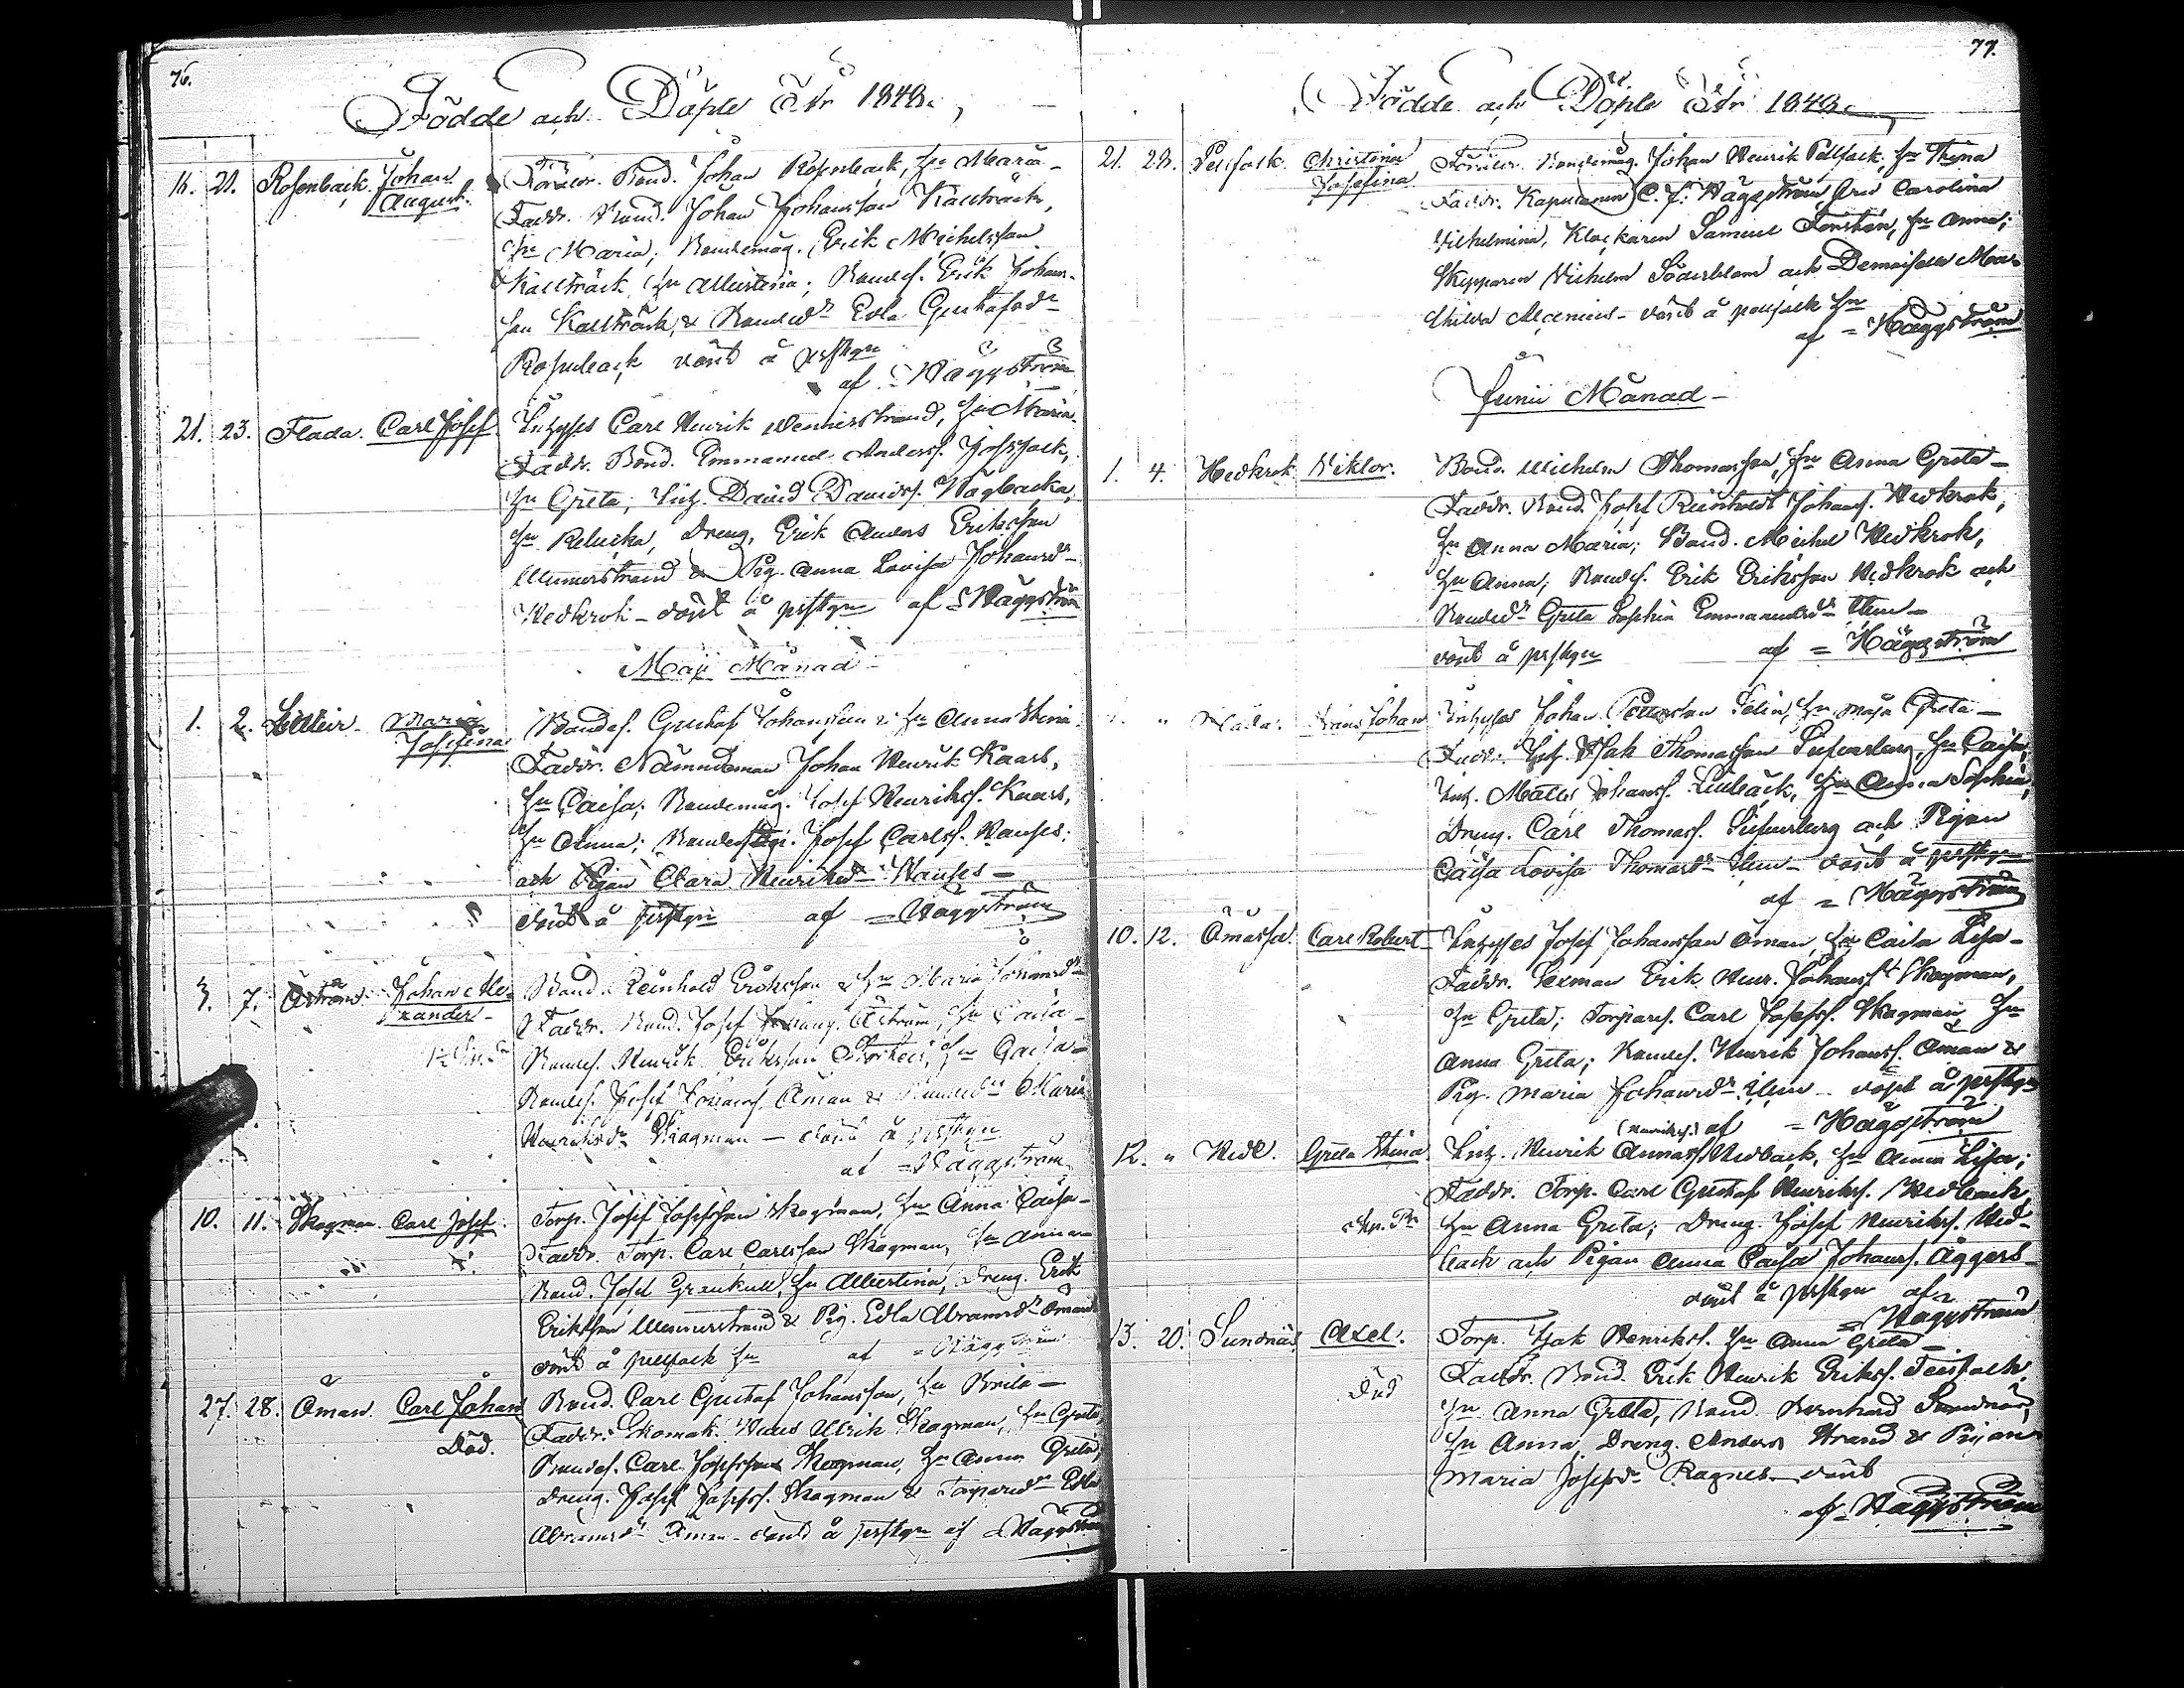 76.
Födde och Döpte År 1848.
16. 21. Rosenback. Johan August. Föräldr. Bond. Johan Rosenback, Hu Maria
Faddr. Bond. Johan Johansson Kallträsk,
Hu Maria; Bondemåg. Erik Michelsson
Kallträsk, Hu Albertina; Bondes. Erik Johans-
son Kallträsk, & Bonded:r Edla Gustafsd:r
Rosenback döpt å prstgn
af Häggström
21. 23. Flada. Carl Josef. Inhyses Carl Henrik Wennerstrand, Hu Maria.
Faddr. Bond. Emmanuel Anderss.
Hu Greta; Inh. David Davidss.
Hu Rebecka, Dreng. Erik Anders Eriksson
Wennerstrand & Pig. Anna Lovisa Johansd:r
Wedkrok - döpt å prstgn af Häggström
Maji Månad -
1. 2. Maria Josefina Bondes. Gustaf Johansson & Hu Anna Stina
Faddr. Nämndeman Johan Henrik Kaars,
Hu Caisa; Bondemåg. Josef Henrikss. Kaars,
Hu Anna; Josef Carlss. Hanses;
och Pigan Clara Henriksd:r Hanses -
döpt å prstgn af = Häggström
3. 7. Åström. Johan Ale-
xander - Bond. Reinhold Eriksson & Hu Maria Johansd:r
Faddr. Bond. Josef Åström, Hu Caisa -
Bondes. Henrik Eriksson Hu Caisa -
Bondes. Josef Johanss. Åman & Bonded:r Maria
Henriksd:r Skagman - döpt å prstgn
af = Häggström
10. 11. Skagman. Carl Josef. Torp. Josef Josefsson Skagman, Hu Anna Caisa -
Faddr. Torp. Carl Carlsson Skagman, Hu Anna -
Bond. Josef Grankull, Hu Albertina, Dreng. Erik
Eriksson Wennerstrand & Pig. Edla Abramsd:r Åman
döpt å Pellfack Hn af = Häggström
27. 28. Åman. Carl Johan Bond. Carl Gustaf Johansson, Hu Brita -
Död. Faddr. Skomak. Ulrik Skagman, Hu Greta,
Bondes. Carl Josefsson Skagman, Hu Anna Greta,
Dreng. Josef Josefss. Skagman & Torpared:r Edla
Abramsd:r Åman - döpt å prstgn af = Häggström
77.
Födde och Döpte År 1848.
21. 28. Pellfack. Christina Josefina Föräldr. Bondemåg. Johan Henrik Pellfack, Hu Stina
Faddr. Kapellanen C. J. Häggström, Fru Carolina
Wilhelmina, Klockaren Samuel Forstén, Hu Anna;
Skepparen Wilhelm Söderblom och Demoiselle
döpt å Pellfack Hn
af = Häggström
Junii Månad -
1. 4. Wedkrok Viktor. Bond. Wilhelm Thomasson, Hu Anna Greta -
Faddr. Bond. Josef Reinholdt Johanss. Wedkrok,
Hu Anna Maria; Bond. Michel Wedkrok,
Hu Anna; Bondes. Erik Eriksson Wedkrok och
Bonded:r Greta Sophia Emmanuelsd:r ibm -
döpt å prstgn af = Häggström
" Flada. Frans Johan Inhyses Johan Pettersson Selin, Hu Maja Greta -
Faddr. Inh. Isak Thomasson Hu Caisa;
Inh. Matts Johanss. Lillbäck, Hu Anna Sophia;
Dreng. Carl Thomass. och Pigan
Caisa Lovisa Thomasd:r ibm - döpt å prstgn
af = Häggström
10. 12. Åmassa. Carl Robert Inhyses Josef Johansson Åman, Hu Caisa Lisa -
Faddr. Sexman Erik Henr. Johanss. Skagman,
Hu Greta; Torpares. Carl Josefss. Skagman, Hu
Anna Greta; Bondes. Henrik Johanss. Åman &
Pig. Maria Johansd:r ibm - döpt å prstgn
af = Häggström
12. " Wedb. Greta Stina Inh. Henrik Annas (Henrikss.) Wedback, Hu Anna Lisa;
Faddr. Torp. Carl Gustaf Henrikss. Wedback,
Hu Anna Greta; Dreng. Josef Henrikss. Wed-
back och Pigan Anna Caisa Johanss. Äggers -
döpt å prstgn af
= Häggström
13. 20. Sundnäs Axel. Torp. Isak Henrikss. Hu Anna Greta -
Död Faddr. Bond. Erik Henrik Erikss. Teirfolk.
Hu Anna Greta, Bond. Bernhard Sundnäs,
Hu Anna, Dreng. Anders Strand & Pigan
Maria Josefsd:r Ragnels - döpt
af Häggström